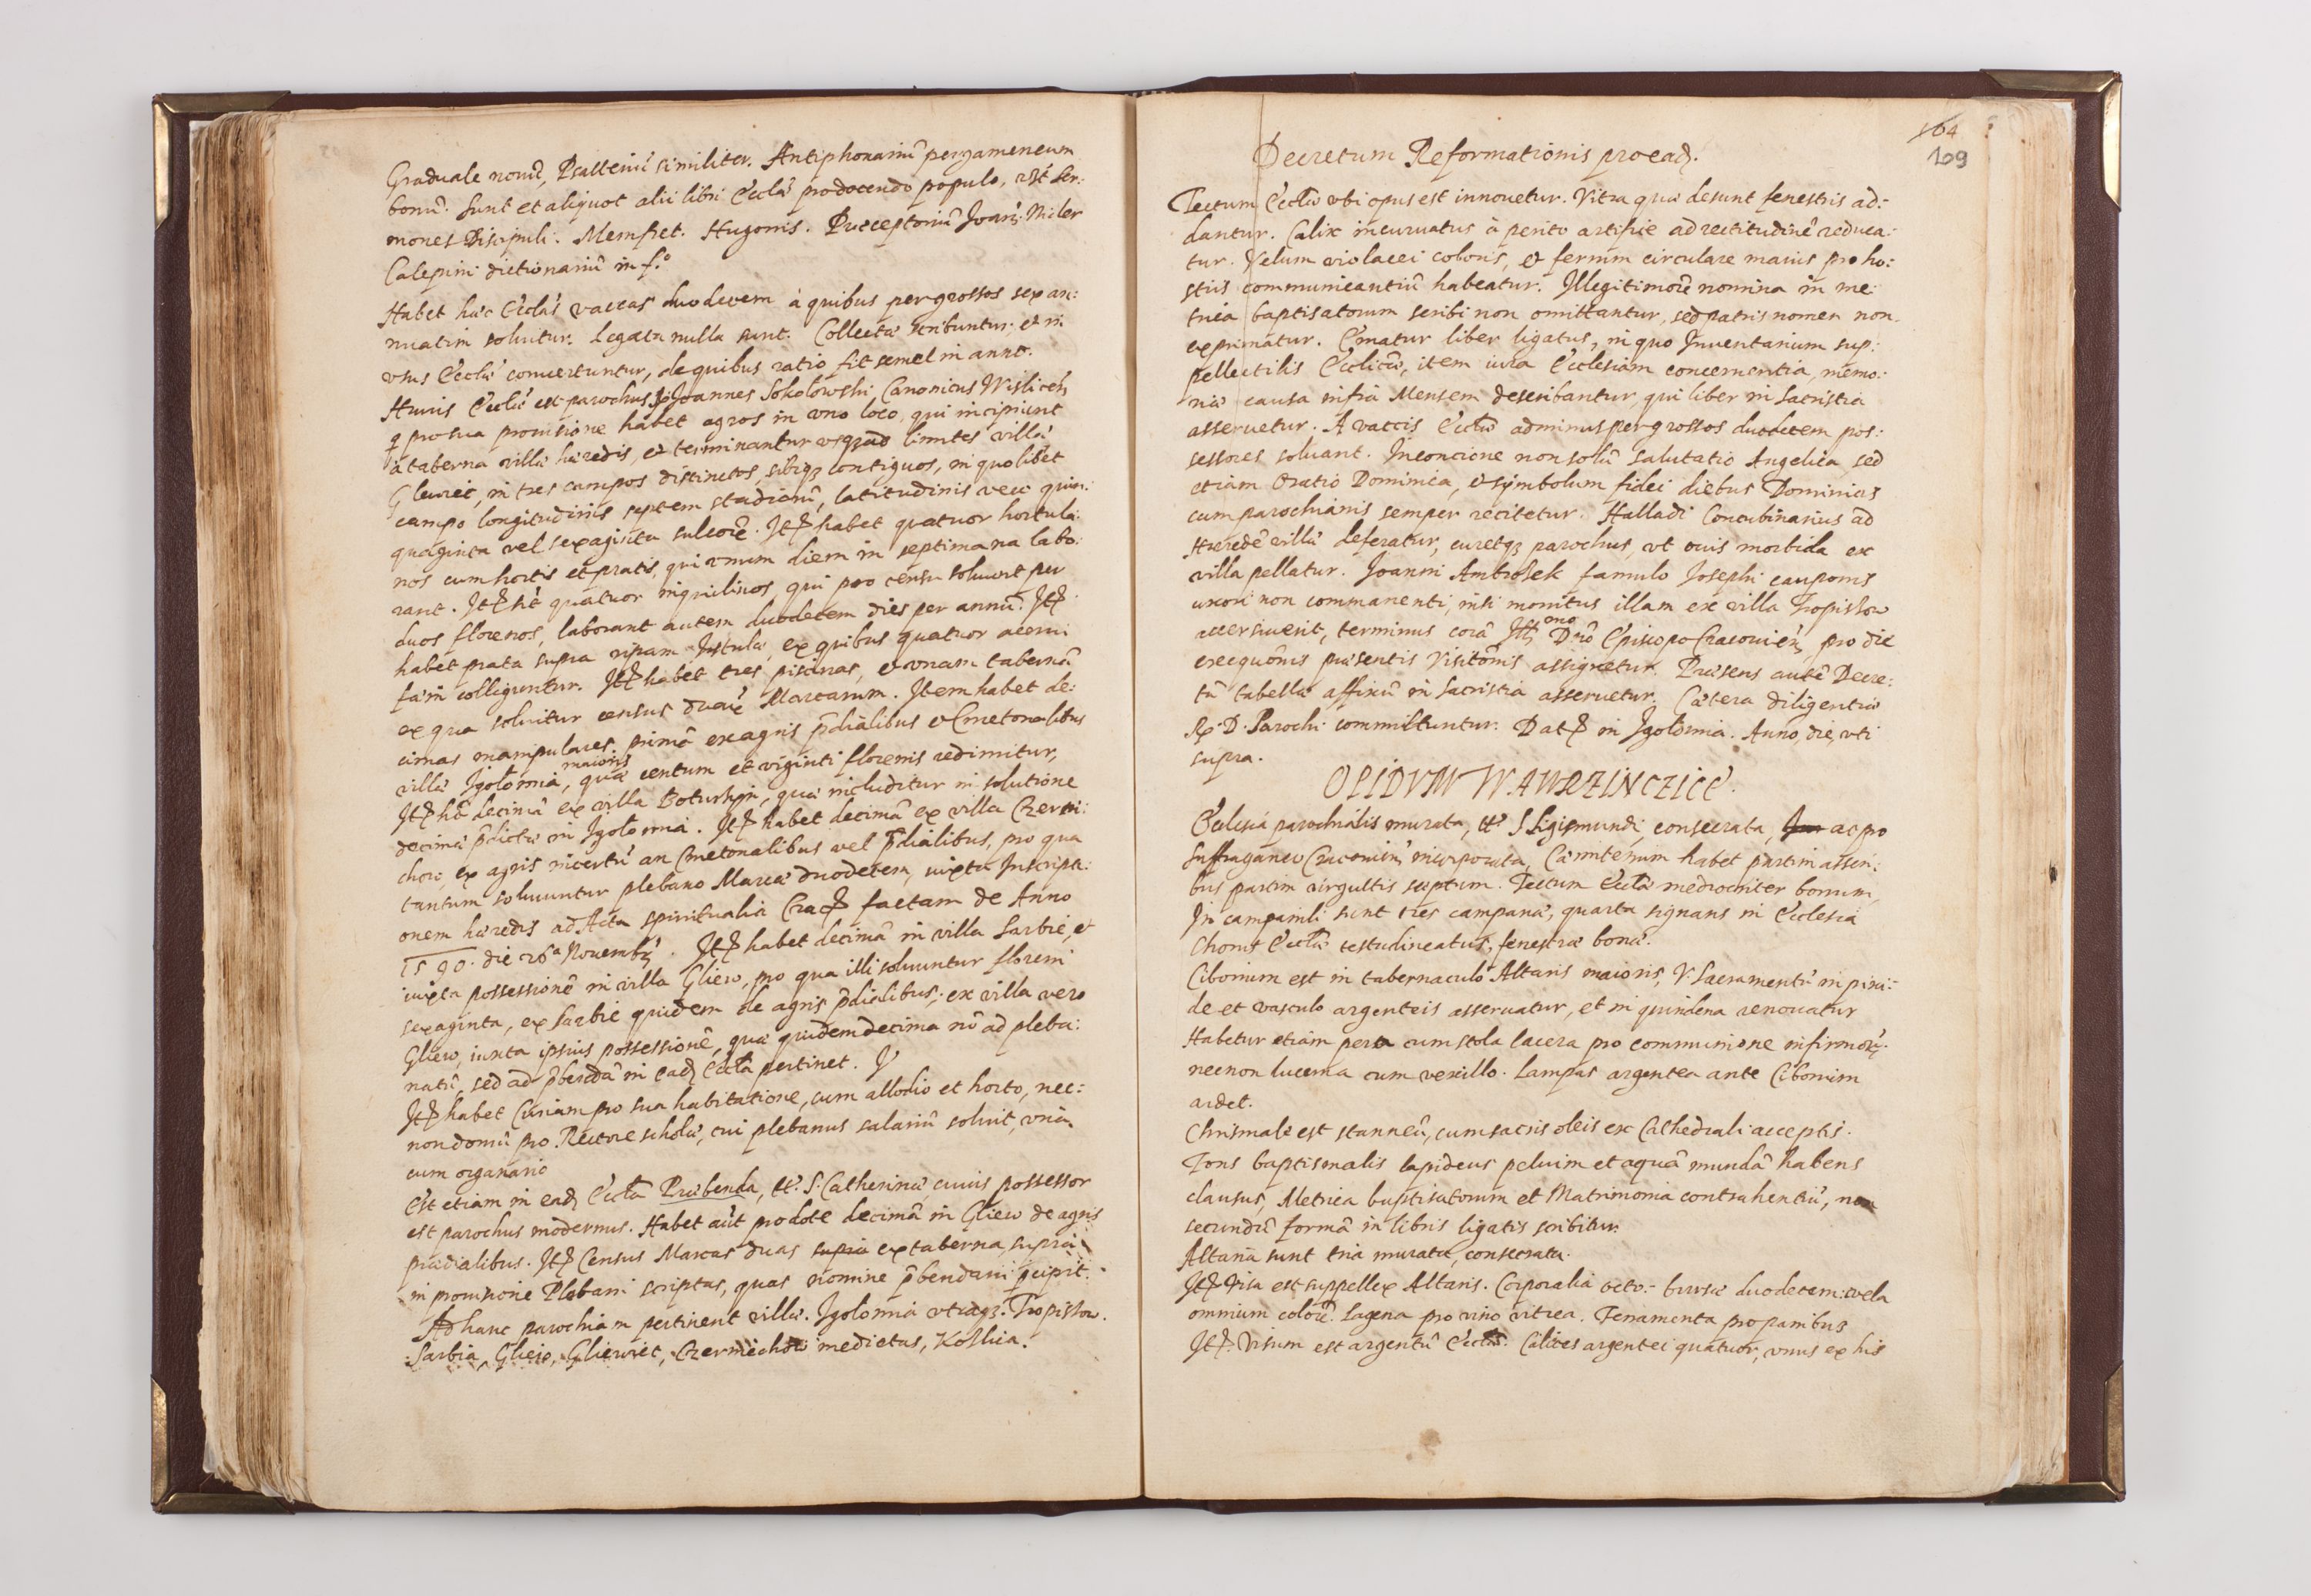 Graduale nouũ, Psalteriũ similiter. Antiphonariũ pergameneum
bonũ. Sunt et aliquot alii libri Eccłæ pro docendo populo, vt Ser:
mones Discipuli. Memfret. Hugonis. Præceptoriũ Joan: Nider
Calepini dictionariũ in f.º
Habet hæc Eccła vaccas duodecem à quibus per grossos sex an:
nuatim soluitur. Legata nulla sunt. Collectæ scribuntur et in
vsus Eccłæ conuertuntur, de quibus ratio fit semel in anno.
Huius Eccłæ est parochus Joannes Sokolowski Canonicus Wislicen
q pro sua prouisione habet agros in vno loco, qui incipiunt
à taberna villæ hæredis, et terminantur vsq ad limites villæ
Glewiec, in tres campos distinctos, sibiq contiguos, in quolibet
campo longitudinis septem stadiorũ, latitudinis vero quin:
quaginta vel sexaginta sulcorũ. Itẽ habet quatuor hortula:
nos cum hortis et pratis, qui vnum diem in septimana labo:
rant. Itẽ hẽt quatuor inquilinos, qui pro censu soluunt per
duos florenos, laborant autem duodecem dies per annũ. Itẽ
habet prata supra ripam Istulæ, ex quibus quatuor acerui
fæni colliguntur. Itẽ habet tres piscinas, et vnam tabernã
ex qua soluitur census duarũ Marcarum. Item habet de:
cimas manipulares, primã ex agris p̃dialibus et Cmetonalibus
villæ Igołomia maioris, quæ centum et viginti florenis redimitur,
Itẽ hẽt decimã ex villa Boturhin, quæ includitur in solutione
decimæ p̃dictæ in Igołomia. Itẽ habet decimã ex villa Czerni:
chow, ex agris incertũ an Cmetonalibus vel p̃dialibus, pro qua
tantum soluuntur plebano Marcæ duodecem, iuxta Inscripti:
onem hæredis ad Acta spiritualia Crac factam de Anno
1590. die 26ª Nouemb. Itẽ habet decimã in villa Sarbie, et
iuxta possessionẽ in villa Gliew, pro qua illi soluuntur floreni
sexaginta, ex Sarbie quidem de agris p̃dialibus, ex villa vero
Gliew, iuxta ipsius possessionẽ, quæ quidem decima nõ ad pleba:
natũ, sed ad p̃bendã in ead Eccła pertinet.
Itẽ habet Curiam pro sua habitatione, cum allodio et horto, nec:
non domũ pro Rectore scholæ, cui plebanus salariũ soluit, vnà
cum organario
Est etiam in ead Eccła Præbenda, tt. S. Catherinæ, cuius possessor
est parochus modernus. Habet aũt pro dote decimã in Gliew de agris
prædialibus. Itẽ Census Marcas duas supra ex taberna, supra
in prouisione Plebani scriptas, quas nomine p̃bendarii pcipit.
Ad hanc parochiam pertinent villæ. Igołomia vtraq. Tropiszow.
Sarbia, Gliew, Gliewiec, Czernichow medietas, Koshia.
164
109
Decretum Reformationis pro ead.
Tectum Eccłæ vbi opus est innouetur. Vitra quæ desunt fenestris ad:
dantur. Calix incuruatus à perito artifice ad rectitudinẽ reduca:
tur. Velum violacei coloris, et ferrum circulare maius pro ho:
stiis communicantiũ habeatur. Illegitimorũ nomina in me:
trica baptisatorum scribi non omittantur, sed patris nomen non
exprimatur. Ematur liber ligatus, in quo Inuentarium sup:
pellectilis Ecclicæ, item iura Ecclesiam concernentia, memo:
riæ causa infra Mensem describantur, qui liber in Sacristia
asseruetur. A vaccis Eccłæ ad minus per grossos duodecem pos:
sessores soluant. In concione non solũ Salutatio Angelica, sed
etiam Oratio Dominica, et symbolum fidei diebus Dominicis
cum parochianis semper recitetur. Halladi Concubinarius ad
Hæredẽ villæ deferatur, curetq parochus, vt ouis morbida ex
villa pellatur. Joanni Ambrosek famulo Josephi cauponis
uxori non commanenti, nisi monitus illam ex villa Tropiszow
accersiuerit, terminus corã Ill͠mo Dño Episcopo Cracouień, pro die
execuõnis præsentis Visitõnis assignetur. Præsens autẽ Decre:
tũ tabellæ affixũ in Sacristia asseruetur. Cætera diligentiæ
R. D. Parochi committuntur. Dat in Igołomia. Anno, die, vti
supra.
OPIDVM WAWRZINCZICE.
Ecclesia parochialis murata, tt. S Sigismundi, consecrata, ac pro
Suffraganeo Cracouień incorporata, Cæmiterium habet partim asseri:
bus partim virgultis septum. Tectum Eccłæ mediocriter bonum,
In campanili sunt tres campanæ, quarta signans in Ecclesia
Chorus Eccłæ testudineatus, fenestræ bonæ.
Ciborium est in tabernaculo Altaris maioris, V. Sacramentũ in pixi:
de et vasculo argenteis asseruatur, et in quindena renouatur
Habetur etiam pera cum stola lacera pro communione infirmorũ.
necnon lucerna cum vexillo. Lampas argentea ante Ciborium
ardet.
Chrismale est stanneũ, cum sacris oleis ex Cathedrali acceptis.
Fons baptismalis lapideus peluim et aquã mundã habens
clausus, Metrica baptisatorum et Matrimonia contrahentiũ, non
secundũ formã in libris ligatis scribitur.
Altaria sunt tria murata, consecrata.
Itẽ Visa est suppellex Altaris. Corporalia octo: bursæ duodecem: vela
omnium colorũ. Lagena pro vino vitrea. Ferramenta pro panibus
Itẽ Visum est argentũ Eccłæ. Calices argentei quatuor, vnus ex his